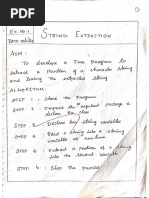 ①
EX.NO:1
STRING EXTRACTION
AIM:
To develop a Java program to
extract a portion of a character string
and the extracted string
ALGORITHM:
STEP 1: Start the Program
STEP 2: Import the required package
before the class
STEP 3: Declare two string
variables
STEP 4: Read a string into a string
variable
STEP 5: Extract a portion of a string
into the second variable
STEP 6: Stop the process